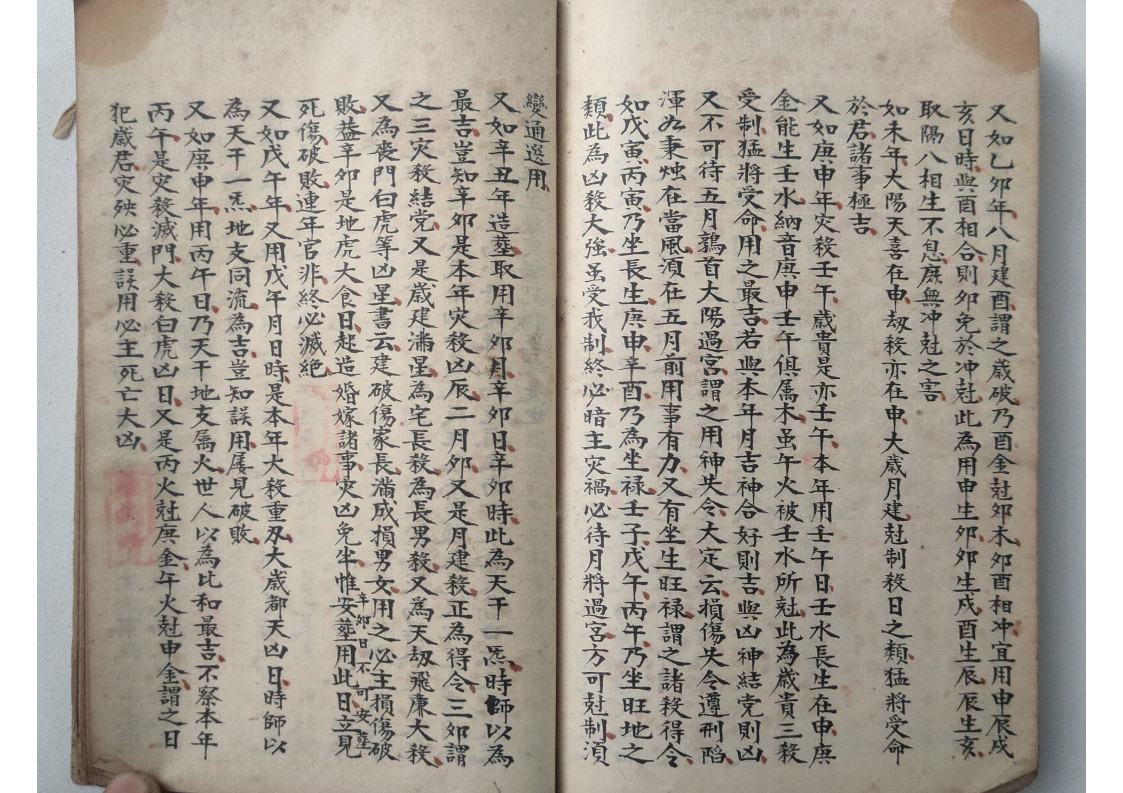 又如乙卯年八月建酉謂之歲破乃酉金尅卯木卯酉相冲宜用申辰戌
亥日時與酉相合則卯免於冲尅此為用申生卯卯生戌酉生辰辰生亥
取隔八相生不息庶無冲尅之害
如未年大陽天喜在申刼殺亦在申大歲月建尅制殺日之類猛將受命
於君諸事極吉
又如庚申年灾殺壬午歲貴是亦壬午本年用壬午日壬水長生在申庚
金能生壬水納音庚申壬午俱属木虽午火被壬水所尅此為歲貴三殺
受制猛將受命用之最吉若與本年月吉神合好則吉與凶神結党則凶
又不可待五月鶉首大陽過宮謂之用神失令大定云損傷失令遵刑陷
渾如秉烛在當風須在五月前用事有力又有坐生旺禄謂之諸殺得令
如戊寅丙寅乃坐長生庚申辛酉乃為坐禄壬子戊午丙午乃坐旺地之
類此為凶殺大強虽受我制終必暗主灾禍必待月將過宮方可尅制須
變通選用
又如辛丑年造塟取用辛卯月辛卯日辛卯時此為天干一炁時師以為
最吉豈知辛卯是本年灾殺凶辰二月卯又是月建殺正為得令三卯謂
之三灾殺結党又是歲建滿星為宅長殺為長男殺又為天刼飛廉大殺
又為喪門白虎等凶星書云建破傷家長滿成損男女用之必主損傷破
敗益辛卯是地虎大食日起造婚嫁諸事灾凶免半惟安塟用此日立見
辛卯日不可安塟
死傷破敗連年官非終必滅絶
又如戊午年又用戊午月日時是本年大殺重刄大歲都天凶日時師以
為天干一炁地支同流為吉豈知誤用屡見破敗
又如庚申年用丙午日乃天干地支属火世人以為比和最吉不察本年
丙午是灾殺滅門大殺白虎凶日又是丙火尅庚金午火尅申金謂之日
犯歲君灾殃必重誤用必主死亡大凶